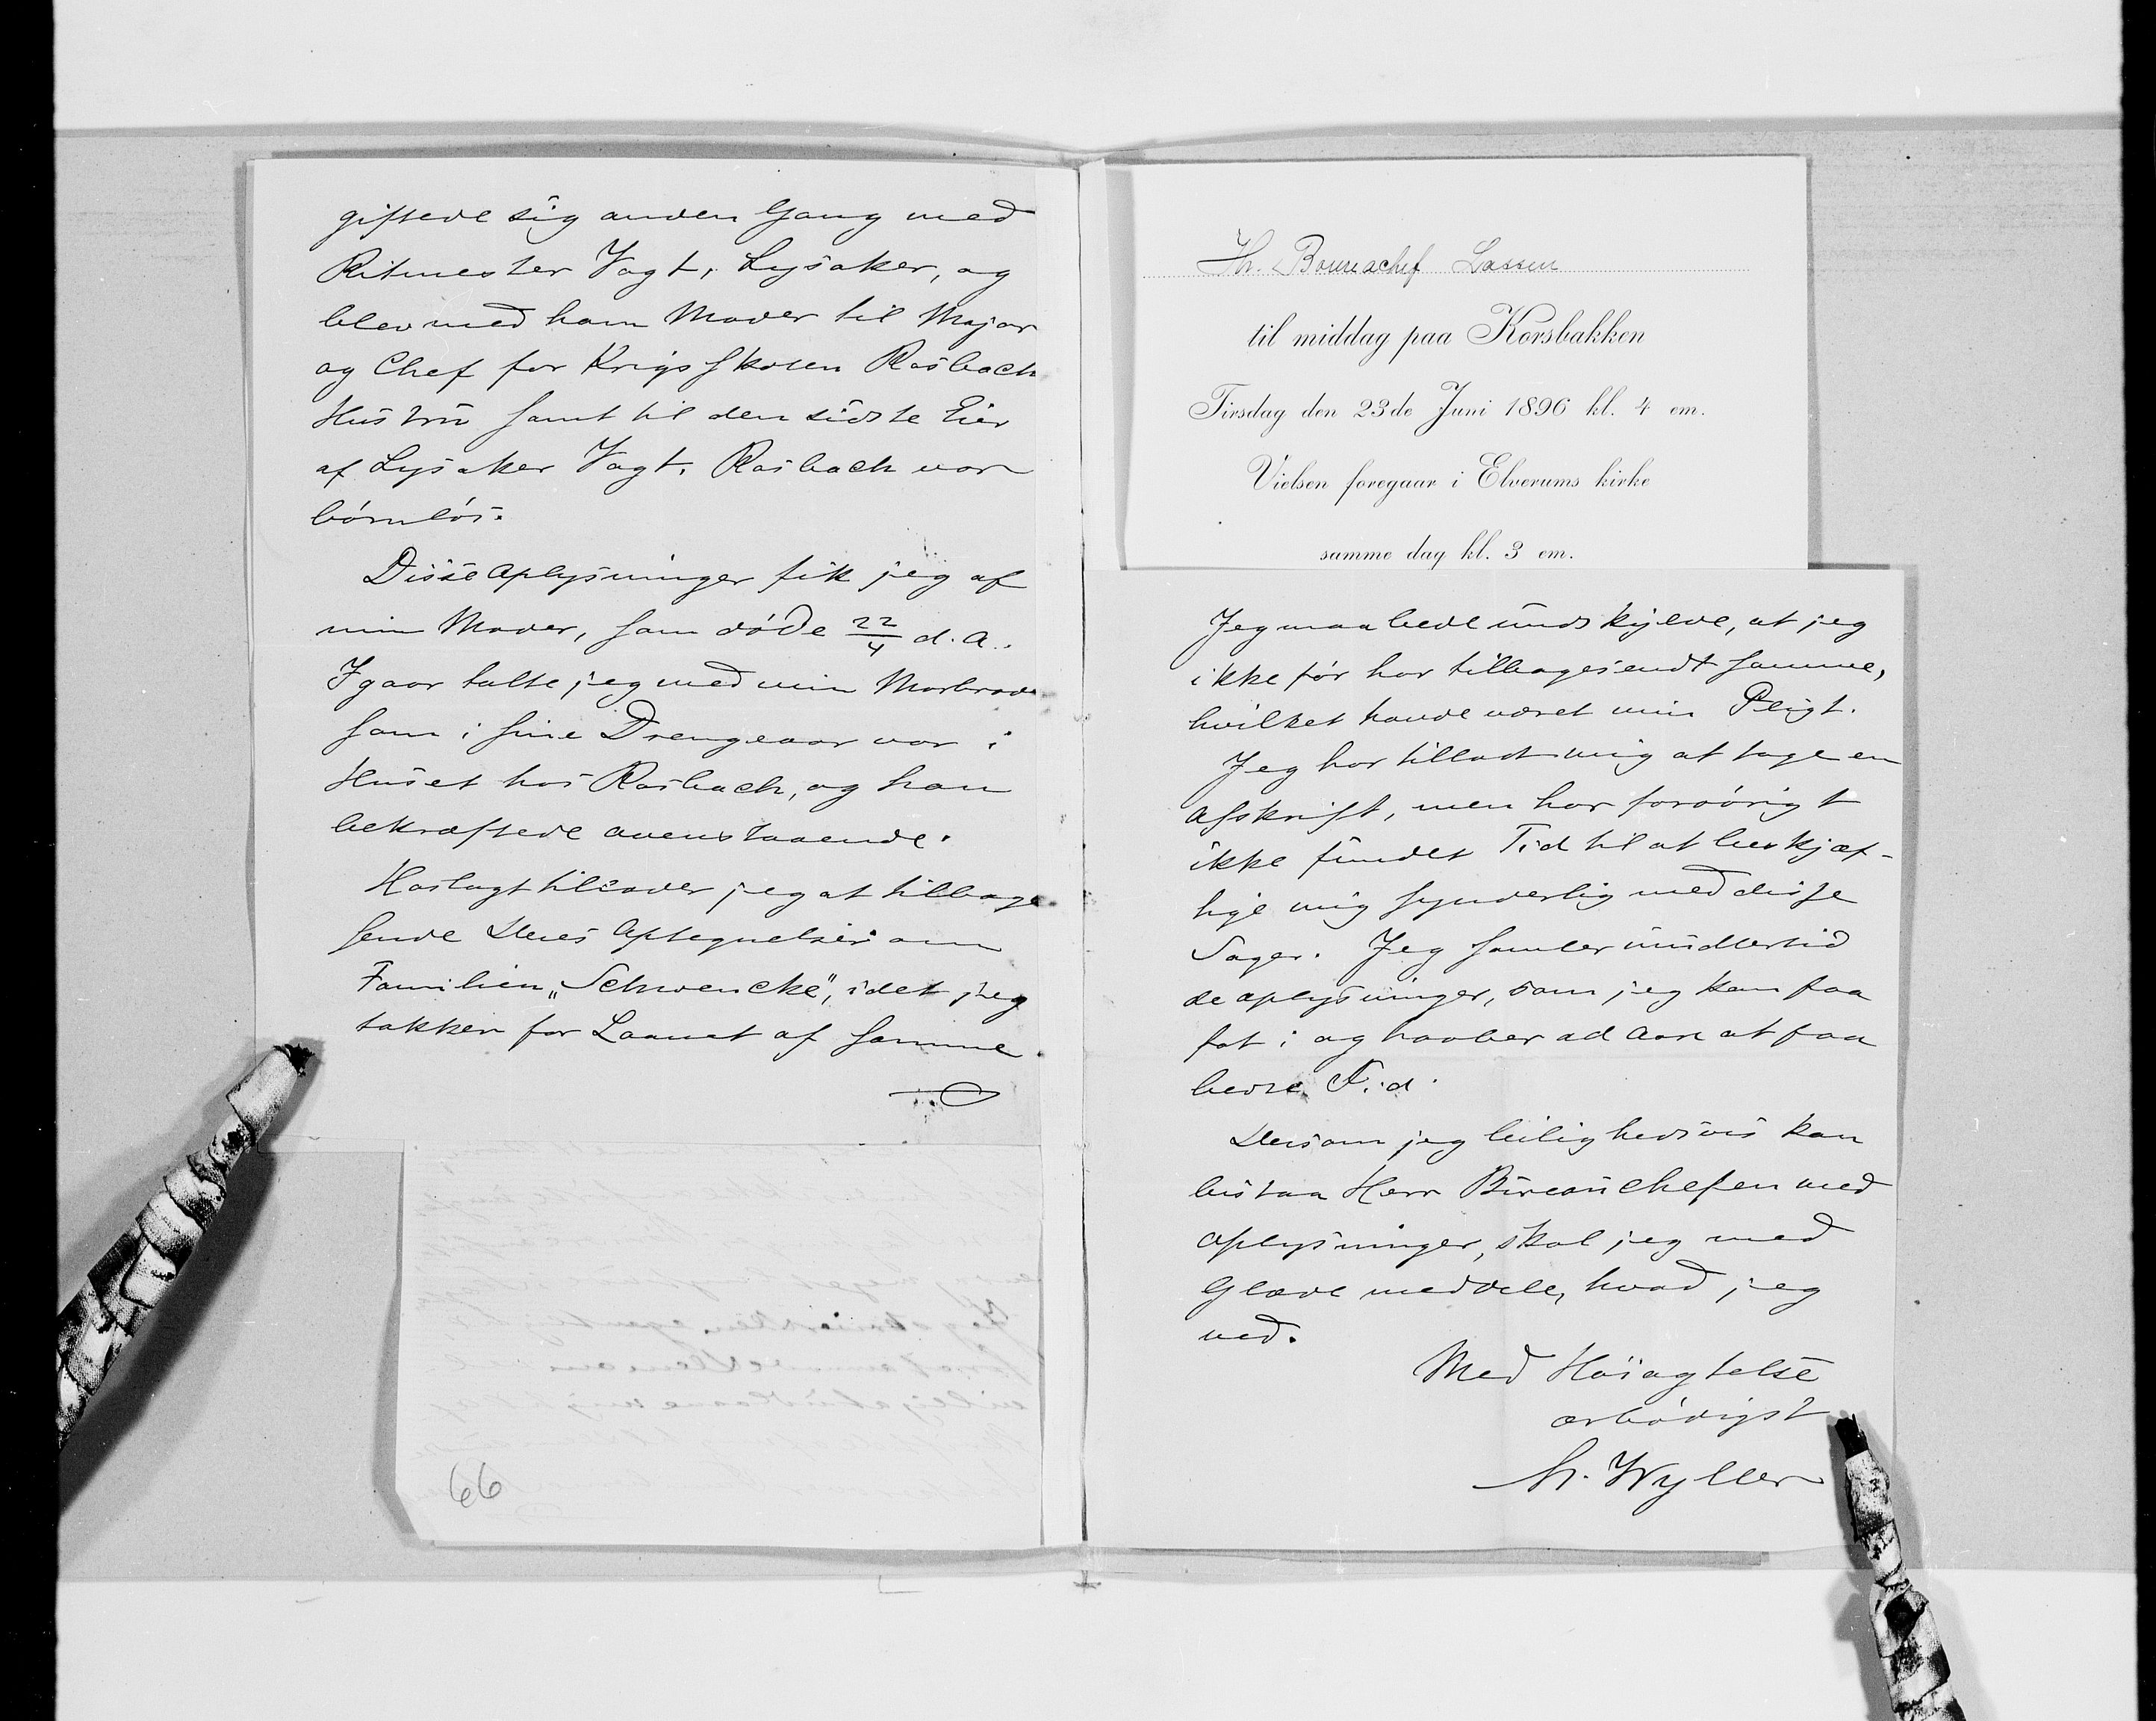 giftede sig anden Gang med
Ritmester Vogt, Lysaker, og
blev med ham Moder til Major
og Chef for Krigsskolen Rosbach
Hustru samt til den sidste Eier
af Lysaker Vogt. Rosbach var
börnlös.
Disse Oplysninger fik jeg af
min Moder, som döde 22/4 d. A..
Igaar talte jeg med min Morbroder
som i sine Drengeaar var i
Huset hos Rosbach, og han
bekræftede ovenstaaende.
Hoslagt tillader jeg at tilbage
sende Deres Optegnelser om
Familien „Schwencke", idet jeg
takker for Laanet af samme.
66
Hr. Boureachef Lassen
til middag paa Korsbakken
Tirsdag den 23de Juni 1896 kl. 4 em.
Vielsen foregaar i Elverums kirke
samme dag kl. 3 em.
Jeg maa bede undskylde, at jeg
ikke för har tilbagesendt samme,
hvilket havde været min Pligt.
Jeg har tilladt mig at tage en
Afskrift, men har forövrigt
ikke fundet Tid til at beskjæf-
tige mig synderlig med disse
Sager. Jeg samler imidlertid
de oplysninger, som jeg kan faa
fat i og haaber ad Aare at faa
bedre Tid.
Dersom jeg leilighedsvis kan
bistaa Herr Bureauchefen med
Oplysninger, skal jeg med
Glæde meddele, hvad jeg
ved.
Med Höiagtelse
ærbödigst
Wyller